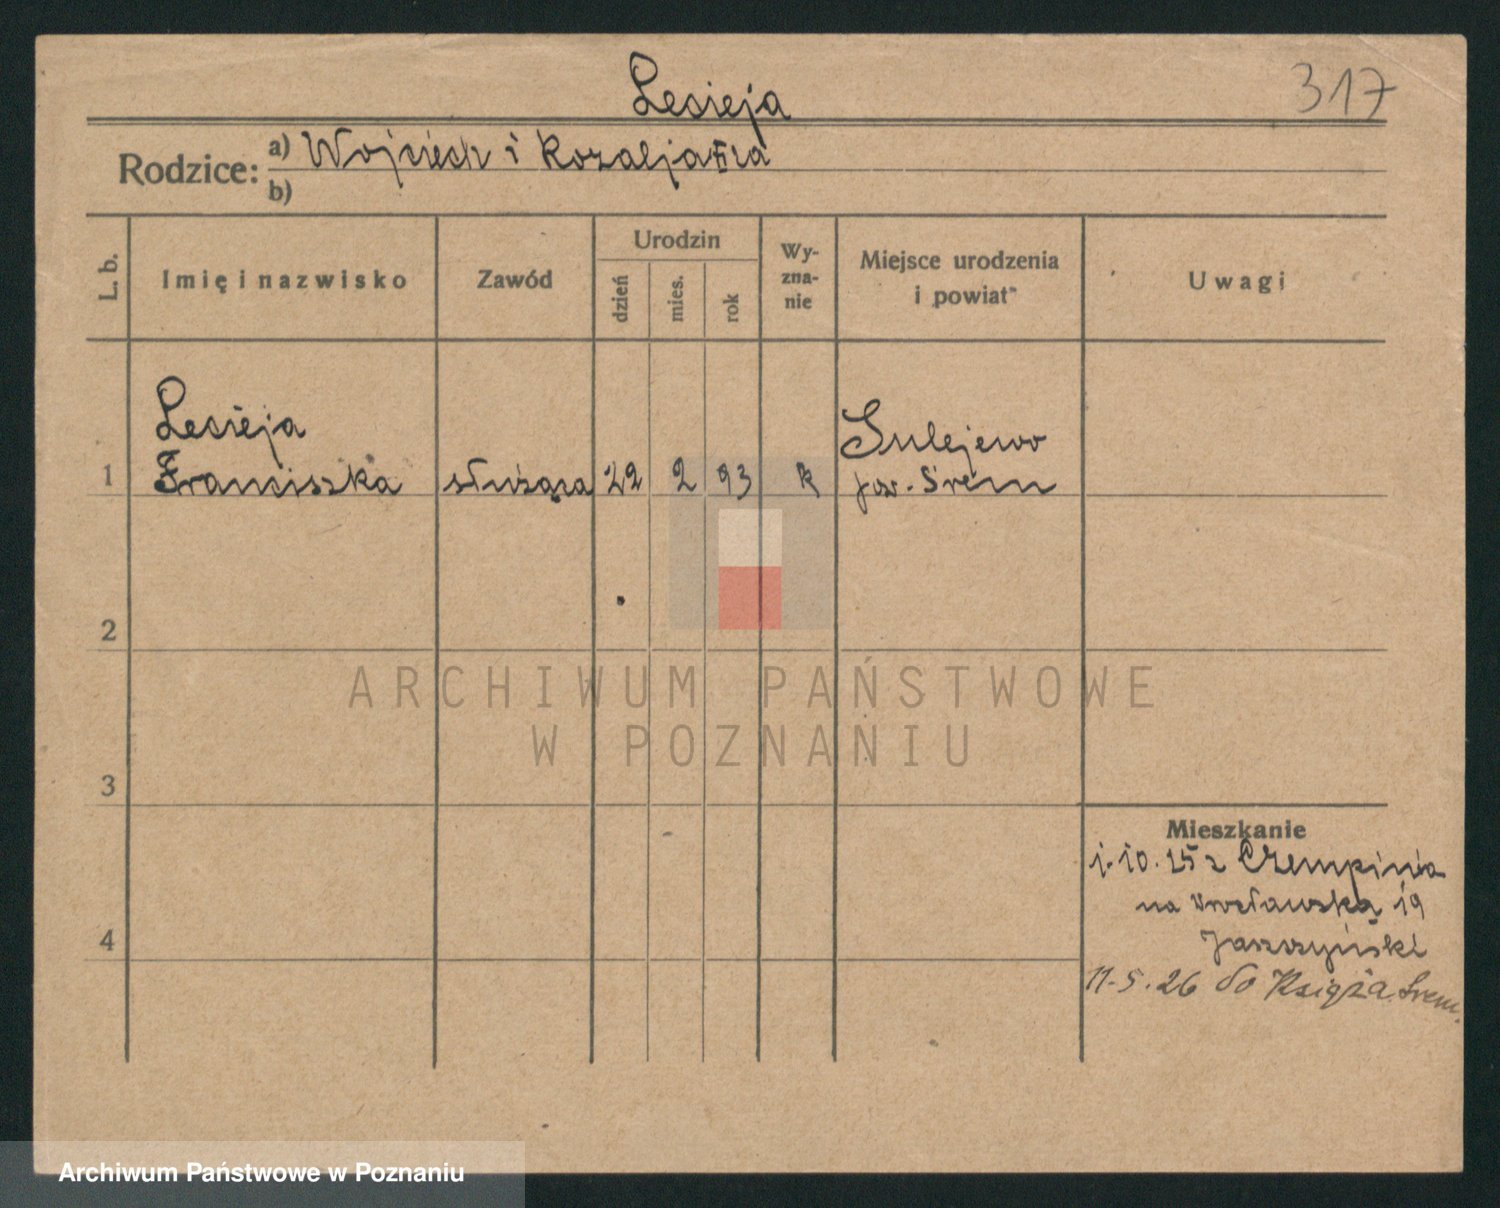 Lesieja
317
Rodzice: a) Wojciech i Rozalja
b)
L. b.
Imię i nazwisko
Zawód
Urodzin
dzień
mies.
rok
Wy-
zna-
nie
Miejsce urodzenia
i powiat
Uwagi
Lesieja
Sulejewo
1 Franciszka służąca 22 2 93 k pow. Śrem
2
ARCHIWUM PAŃSTWOWE
W POZNANIU
3
Mieszkanie
1.10.25 z Czempinia
na Wrocławską 19
Jaszczyński
4
11.5.26 do Książa Śrem.
Archiwum Państwowe w Poznaniu